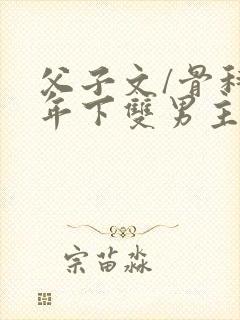 父子文/骨科
年下雙男主
宗苗淼